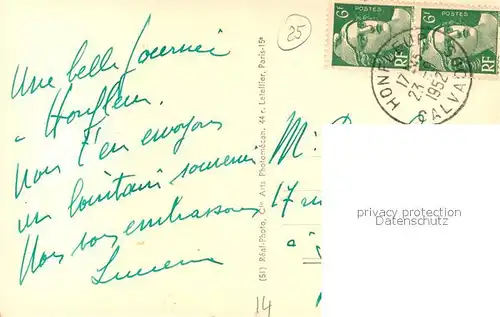 Une belle journée
à Honfleur.
Nous t'en envoyons
un lointain souvenir
Nous vous embrassons
Lucienne
(51) Réal-Photo, Cie Arts Photomécan. 44 r. Letellier, Paris-15e
25
14
6F
POSTES
RF
6F
POSTES
RF
HONFLEUR
17-
23-
1952
CALVADOS
M:
17
à
privacy protection
Datenschutz